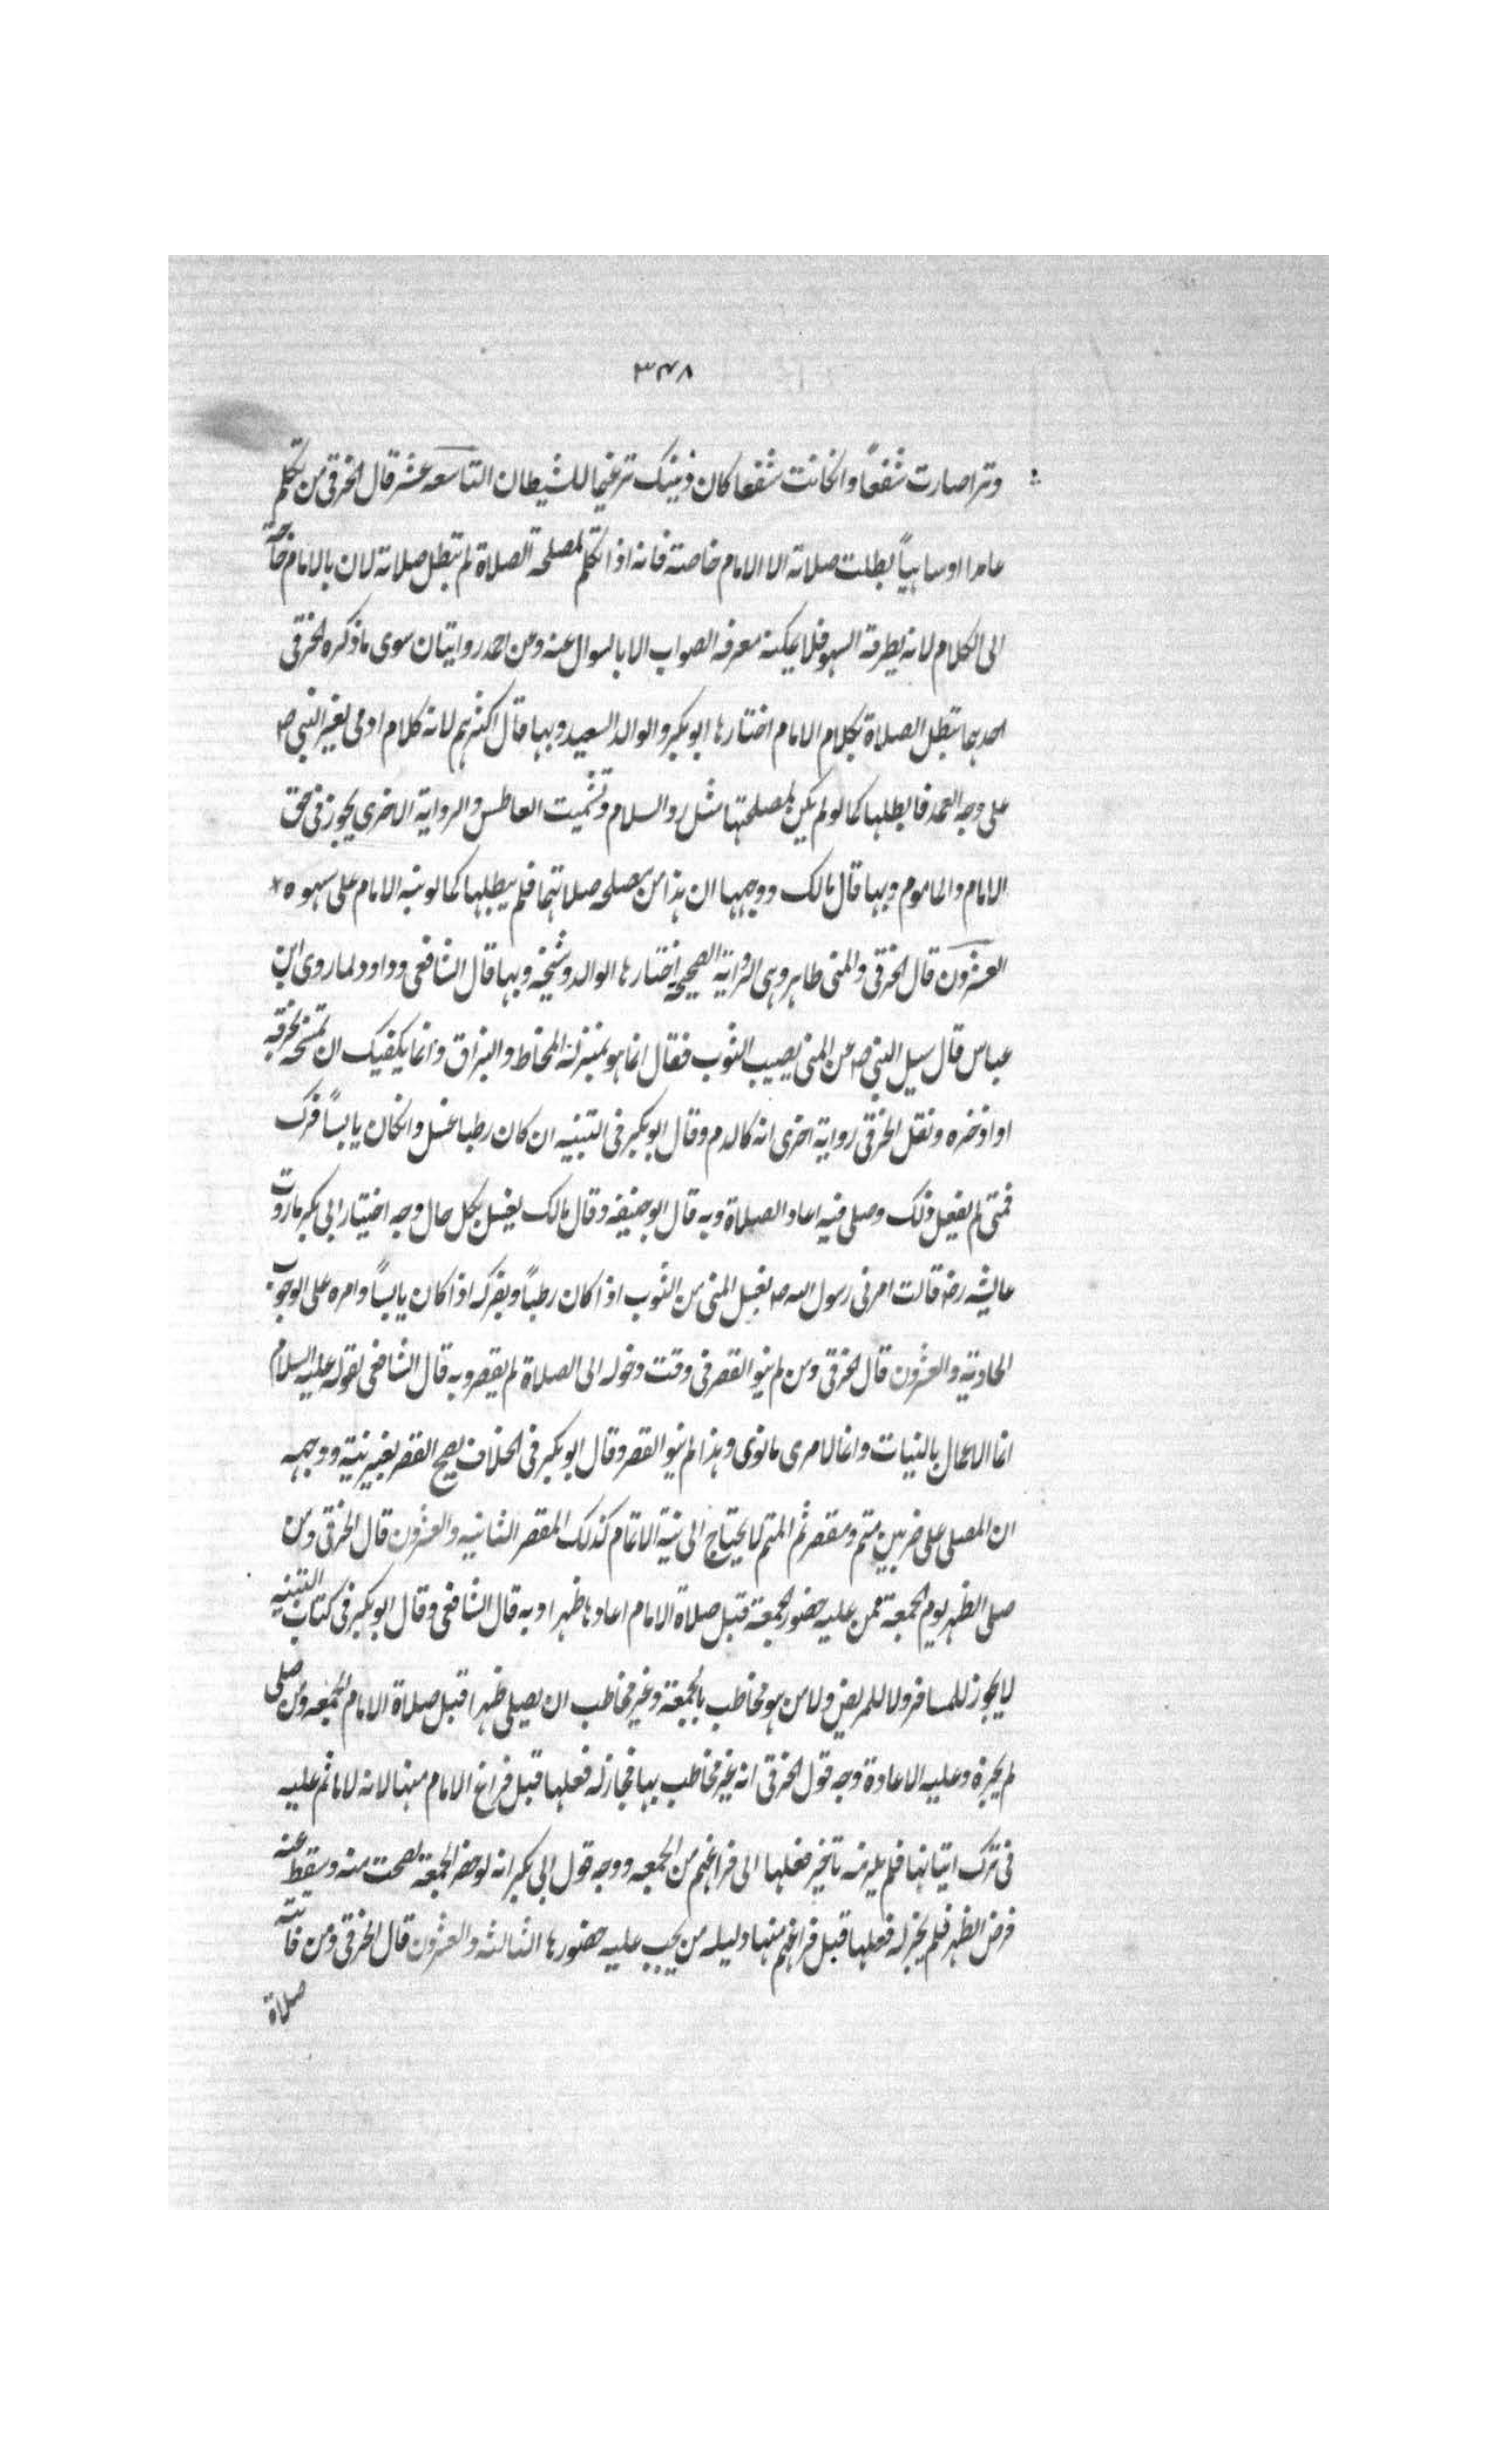 ٣٤٨
وترا صارت شفعاً وانكانت شفعا كان ذينك ترغيما للشيطان التاسعه عشر قال الخرقى من تكلم
عامدا اوساهياً بطلت صلاته الا الامام خاصته فانه اذا تكلم لمصلحة الصلاة لم تبطل صلاته لان بالامام حاجة
الى الكلام لانه يطرقه السهو فلا يمكنه معرفه الصواب الا بالسوال عنه وعن احمد روايتان سوى ما ذكره الخرقى
احدهما تبطل الصلاة بكلام الامام اختارها ابو بكر والوالد السعيد وبها قال اكثرهم لانه كلام ادمى لغير النبى ص
على وجه العمد فابطلها كما لو لم يكن لمصلحتها مثل رد السلام وتشميت العاطس والرواية الاخرى يجوز فى حق
الامام والماموم وبها قال مالك ووجهها ان هذا من مصلحه صلاتهما فلم يبطلها كما لو نبه الامام على سهوه
العشرون قال الخرقى والمنى طاهر وهى الرواية الصحيحه اختارها الوالد وشيخه وبها قال الشافعى وداود لما روى ابن
عباس قال سيل النبى ص عن المنى يصيب الثوب فقال انما هو بمنزلة المخاط والبزاق وانما يكفيك ان تمسحه بخرقه
او اذخره ونقل الخرقى رواية اخرى انه كالدم وقال ابو بكر فى التنبيه ان كان رطبا غسل وانكان يابساً فرك
فمتى لم يفعل ذلك وصلى فيه اعاد الصلاة وبه قال ابو حنيفه وقال مالك يغسل بكل حال وجه اختيار ابى بكر ما روت
عايشه رضه قالت امرنى رسول الله ص بغسل المنى من الثوب اذا كان رطباً وبفركه اذا كان يابساً وامره على الوجوب
الحاديه والعشرون قال الخرقى ومن لم ينو القصر فى وقت دخوله الى الصلاة لم يقصر وبه قال الشافعى لقوله عليه السلام
انما الاعمال بالنيات وانما لامرى ما نوى وهذا لم ينو القصر وقال ابو بكر فى الخلاف يصح القصر بغير نية ووجهه
ان المصلى على ضربين متم ومقصر ثم المتم لا يحتاج الى نية الاتمام كذلك المقصر الثانيه والعشرون قال الخرقى ومن
صلى الظهر يوم الجمعة ممن عليه حضور الجمعة قبل صلاة الامام اعادها ظهرا وبه قال الشافعى وقال ابو بكر فى كتاب التنبيه
لا يجوز للمسافر ولا للمريض ولا من هو مخاطب بالجمعة وغير مخاطب ان يصلى ظهرا قبل صلاة الامام الجمعه ومن صلى
لم يجزه وعليه الاعادة وجه قول الخرقى انه غير مخاطب بها فجاز له فعلها قبل فراغ الامام منها لانه لا ماثم عليه
فى ترك اتيانها فلم يلزمه تاخير فعلها الى فراغهم من الجمعه ووجه قول ابى بكر انه لو حضر الجمعة لصحت منه وسقط عنه
فرض الظهر فلم يجز له فعلها قبل فراغهم منها دليله من يجب عليه حضورها الثالثه والعشرون قال الخرقى ومن فاتته
صلاة